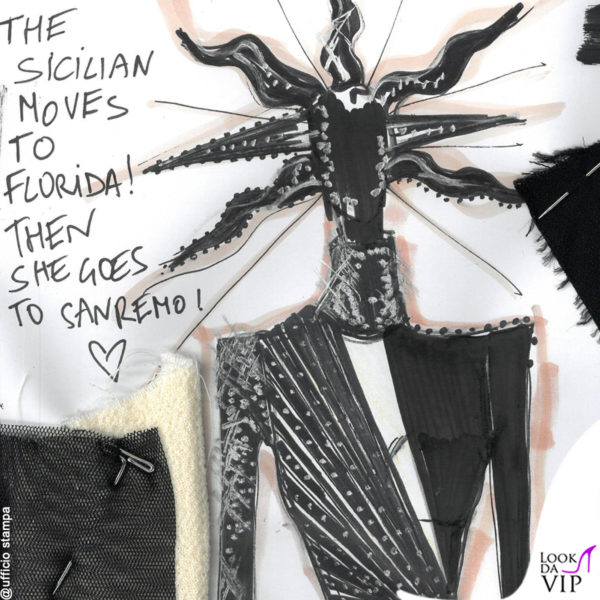 THE
SICILIAN
MOVES
TO
FLORIDA!
THEN
SHE GOES
TO SANREMO!
@ufficio stampa
LOOK
DA
VIP